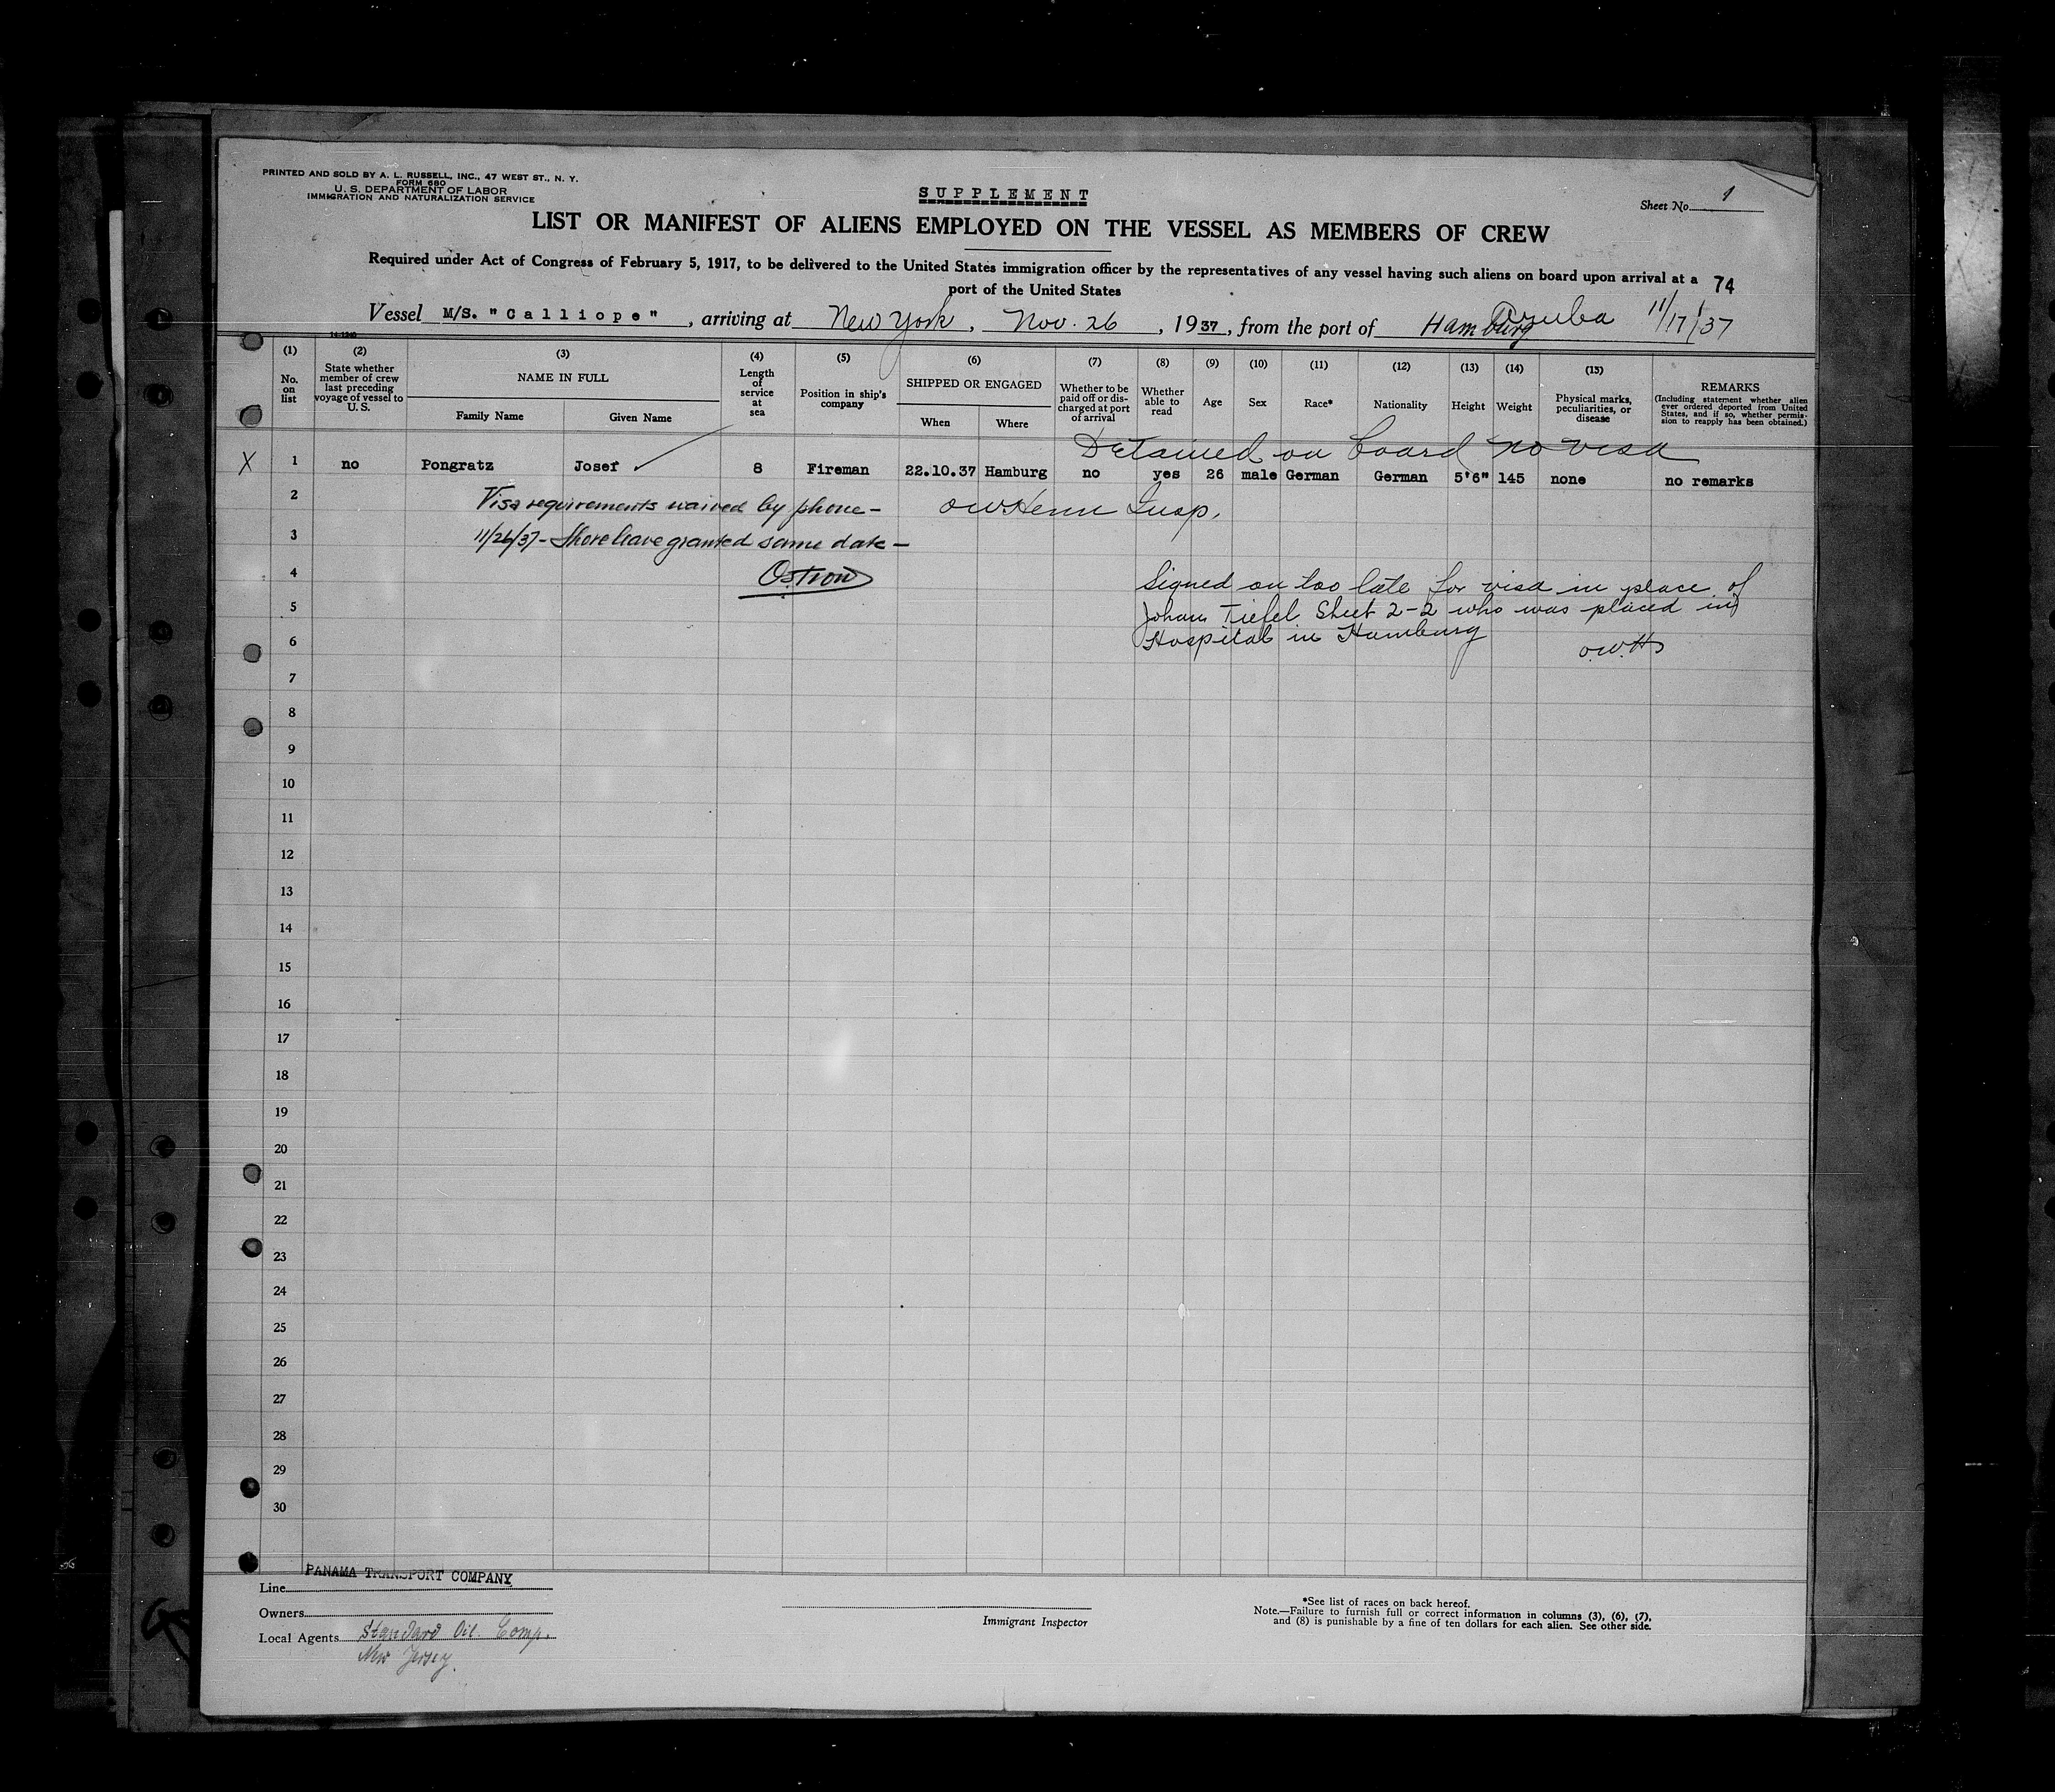 PRINTED AND SOLD BY A. L. RUSSELL, INC., 47 WEST ST., N. Y.
FORM 680
U. S. DEPARTMENT OF LABOR
IMMIGRATION AND NATURALIZATION SERVICE
SUPPLEMENT
Sheet No. 1
LIST OR MANIFEST OF ALIENS EMPLOYED ON THE VESSEL AS MEMBERS OF CREW
Required under Act of Congress of February 5, 1917, to be delivered to the United States immigration officer by the representatives of any vessel having such aliens on board upon arrival at a
port of the United States
74
Vessel M/S. "Calliope", arriving at New York, Nov. 26, 1937, from the port of Hamburg Aruba 11/17/37
14-1240
(1) (2) (3) (4) (5) (6) (7) (8) (9) (10) (11) (12) (13) (14) (15)
No. on list
State whether member of crew last preceding voyage of vessel to U. S.
NAME IN FULL
Family Name
Given Name
Length of service at sea
Position in ship's company
SHIPPED OR ENGAGED
When
Where
Whether to be paid off or discharged at port of arrival
Whether able to read
Age
Sex
Race*
Nationality
Height
Weight
Physical marks, peculiarities, or disease
REMARKS
(Including statement whether alien ever ordered deported from United States, and if so, whether permission to reapply has been obtained.)
Detained on board no visa
X 1 no Pongratz Josef 8 Fireman 22.10.37 Hamburg no yes 26 male German German 5'6" 145 none no remarks
2 Visa requirements waived by phone - OWHenn Insp.
3 11/26/37 - Shore leave granted same date -
4 Ostrow
Signed on too late for visa in place of
5 Johann Tiefel Sheet 2-2 who was placed in
6 Hospital in Hamburg
O.W.H
7
8
9
10
11
12
13
14
15
16
17
18
19
20
21
22
23
24
25
26
27
28
29
30
Line PANAMA TRANSPORT COMPANY
Owners
Local Agents Standard Oil Comp.
New Jersey.
Immigrant Inspector
*See list of races on back hereof.
Note.—Failure to furnish full or correct information in columns (3), (6), (7),
and (8) is punishable by a fine of ten dollars for each alien. See other side.